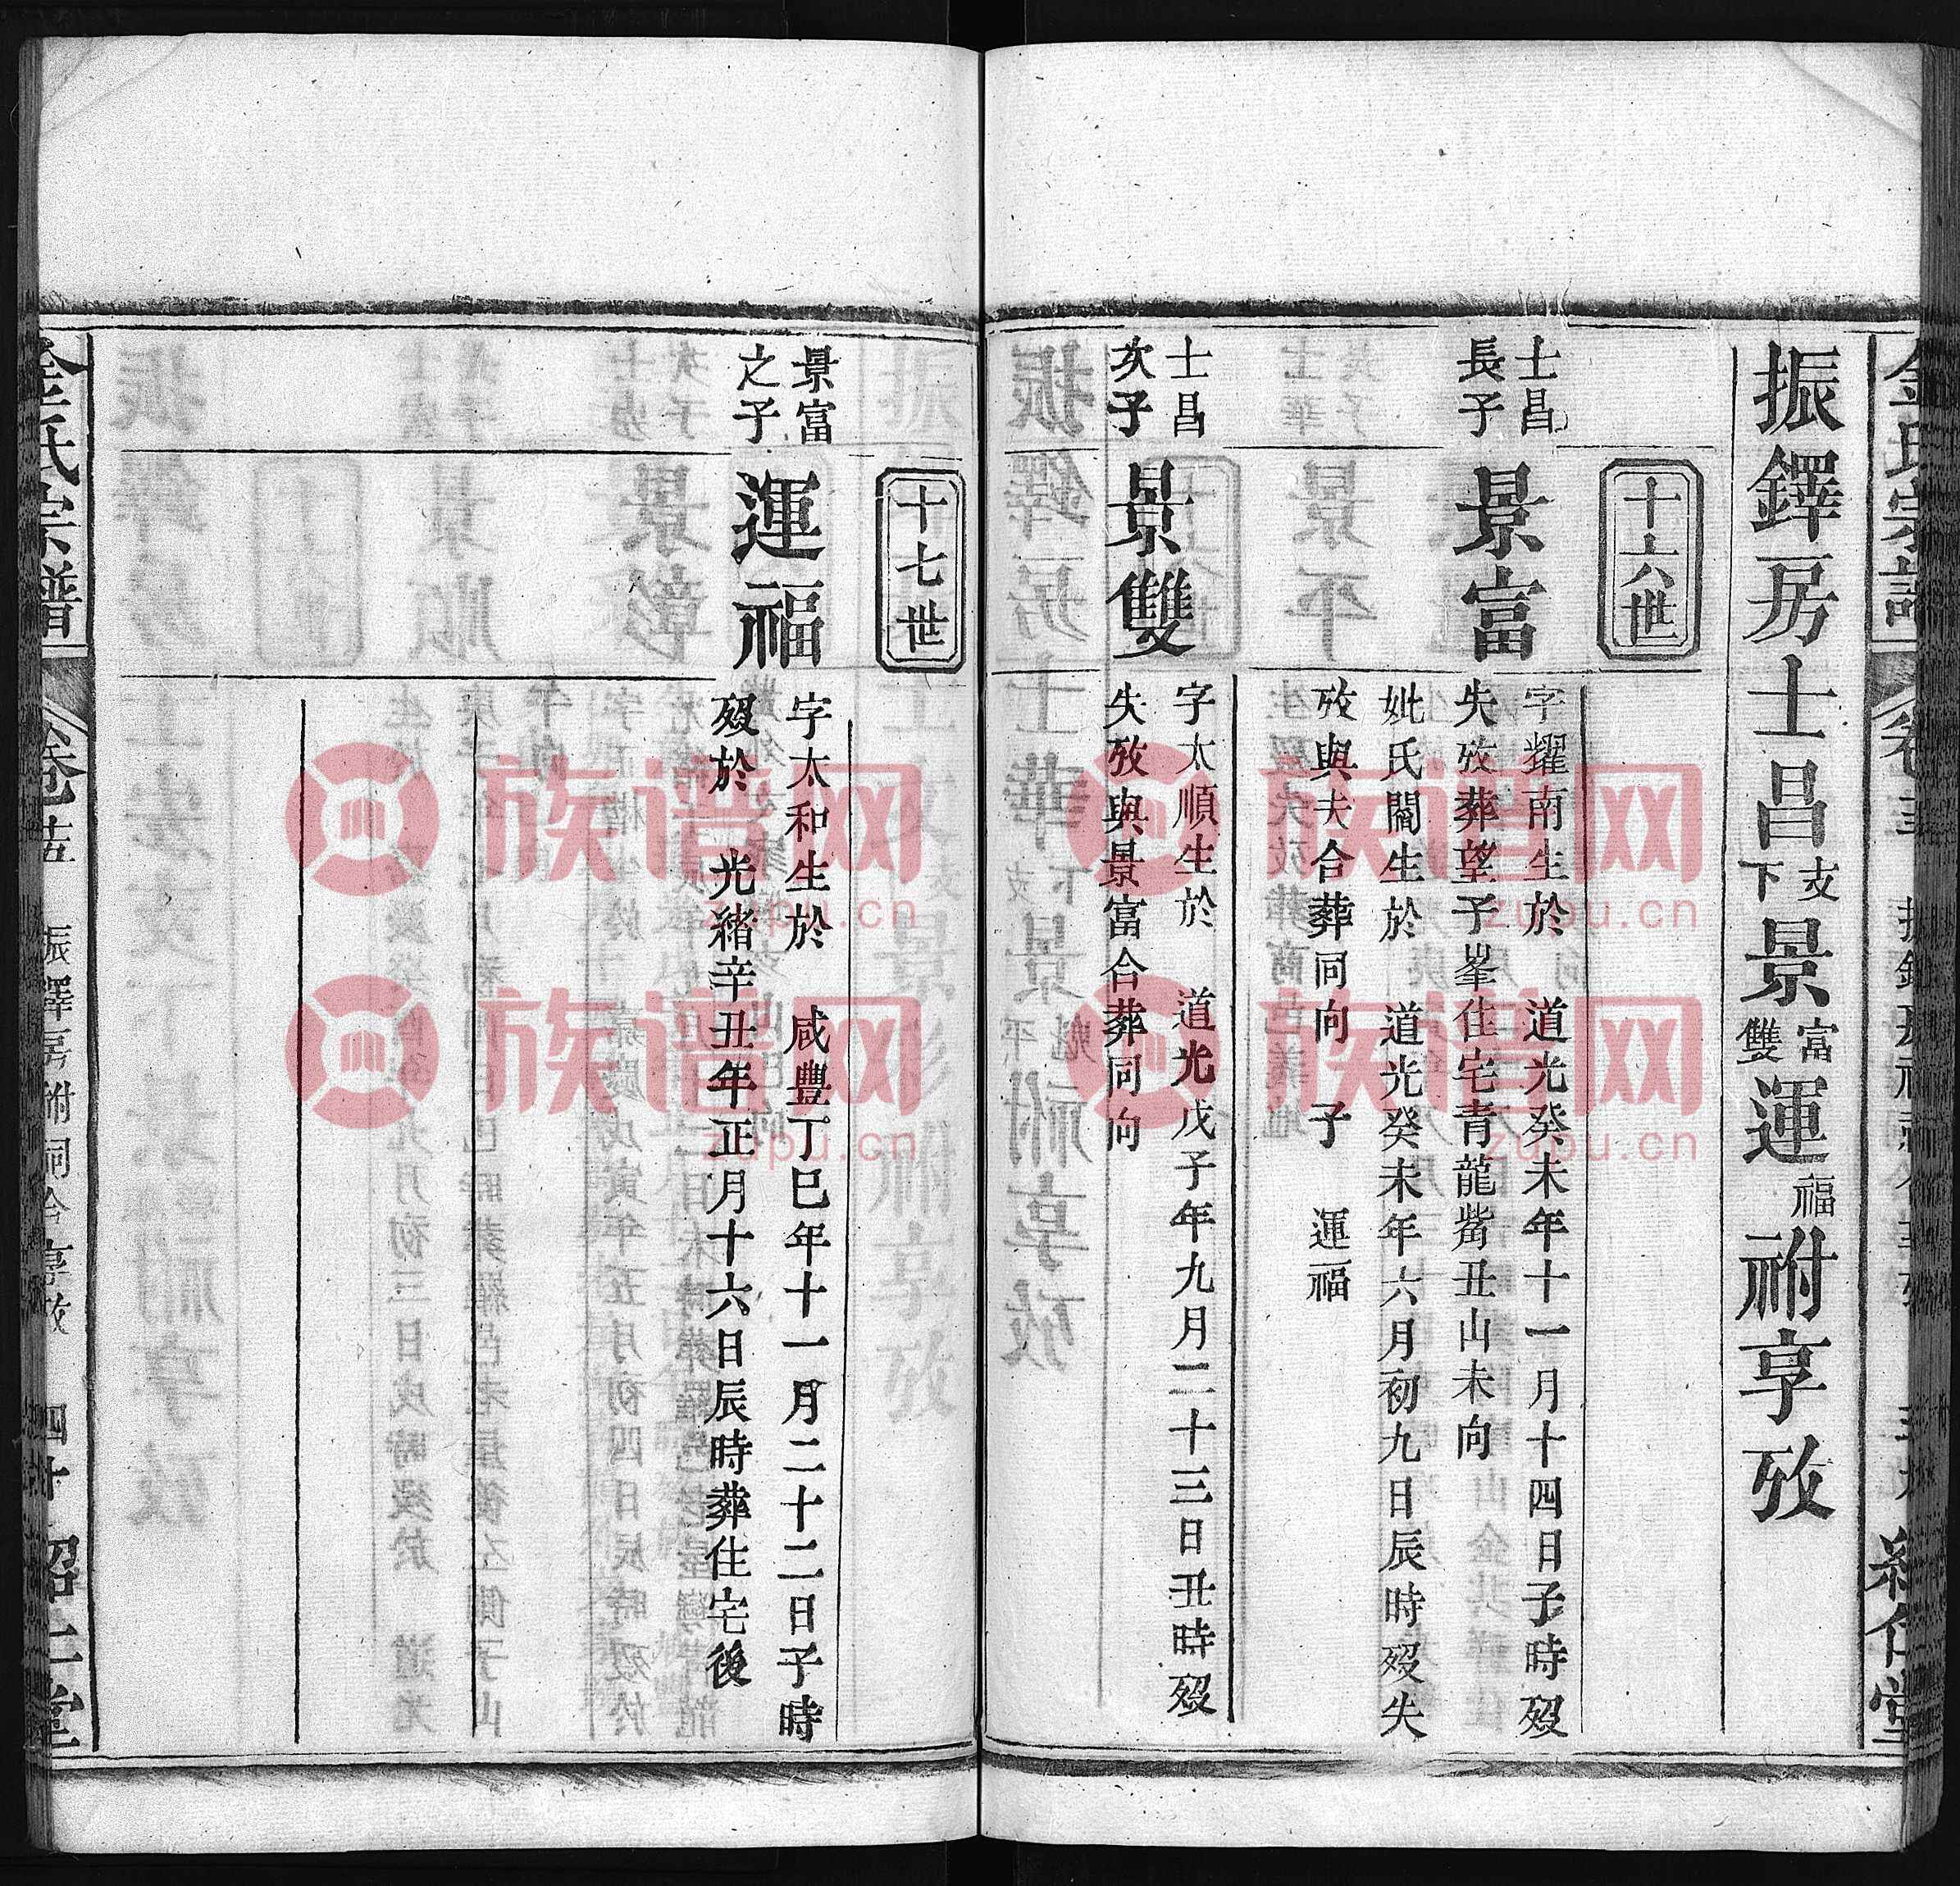 振鐸房士昌支下景富雙運福祔享攷
十六世
士昌
長子
景富
字耀南生於 道光癸未年十一月十四日子時歿
失攷葬望子峯住宅青龍觜丑山未向
妣氏閻生於 道光癸未年六月初九日辰時歿失
攷與夫合葬同向 子 運福
士昌
次子
景雙
字太順生於 道光戊子年九月二十三日丑時歿
失攷與景富合葬同向
十七世
景富
之子
運福
字太和生於 咸豐丁巳年十一月二十二日子時
歿於 光緒辛丑年正月十六日辰時葬住宅後
氏宗譜
振鐸房祔祠合享攷
四十
族谱网
zupu.cn
族谱网
zupu.cn
族谱网
zupu.cn
族谱网
zupu.cn